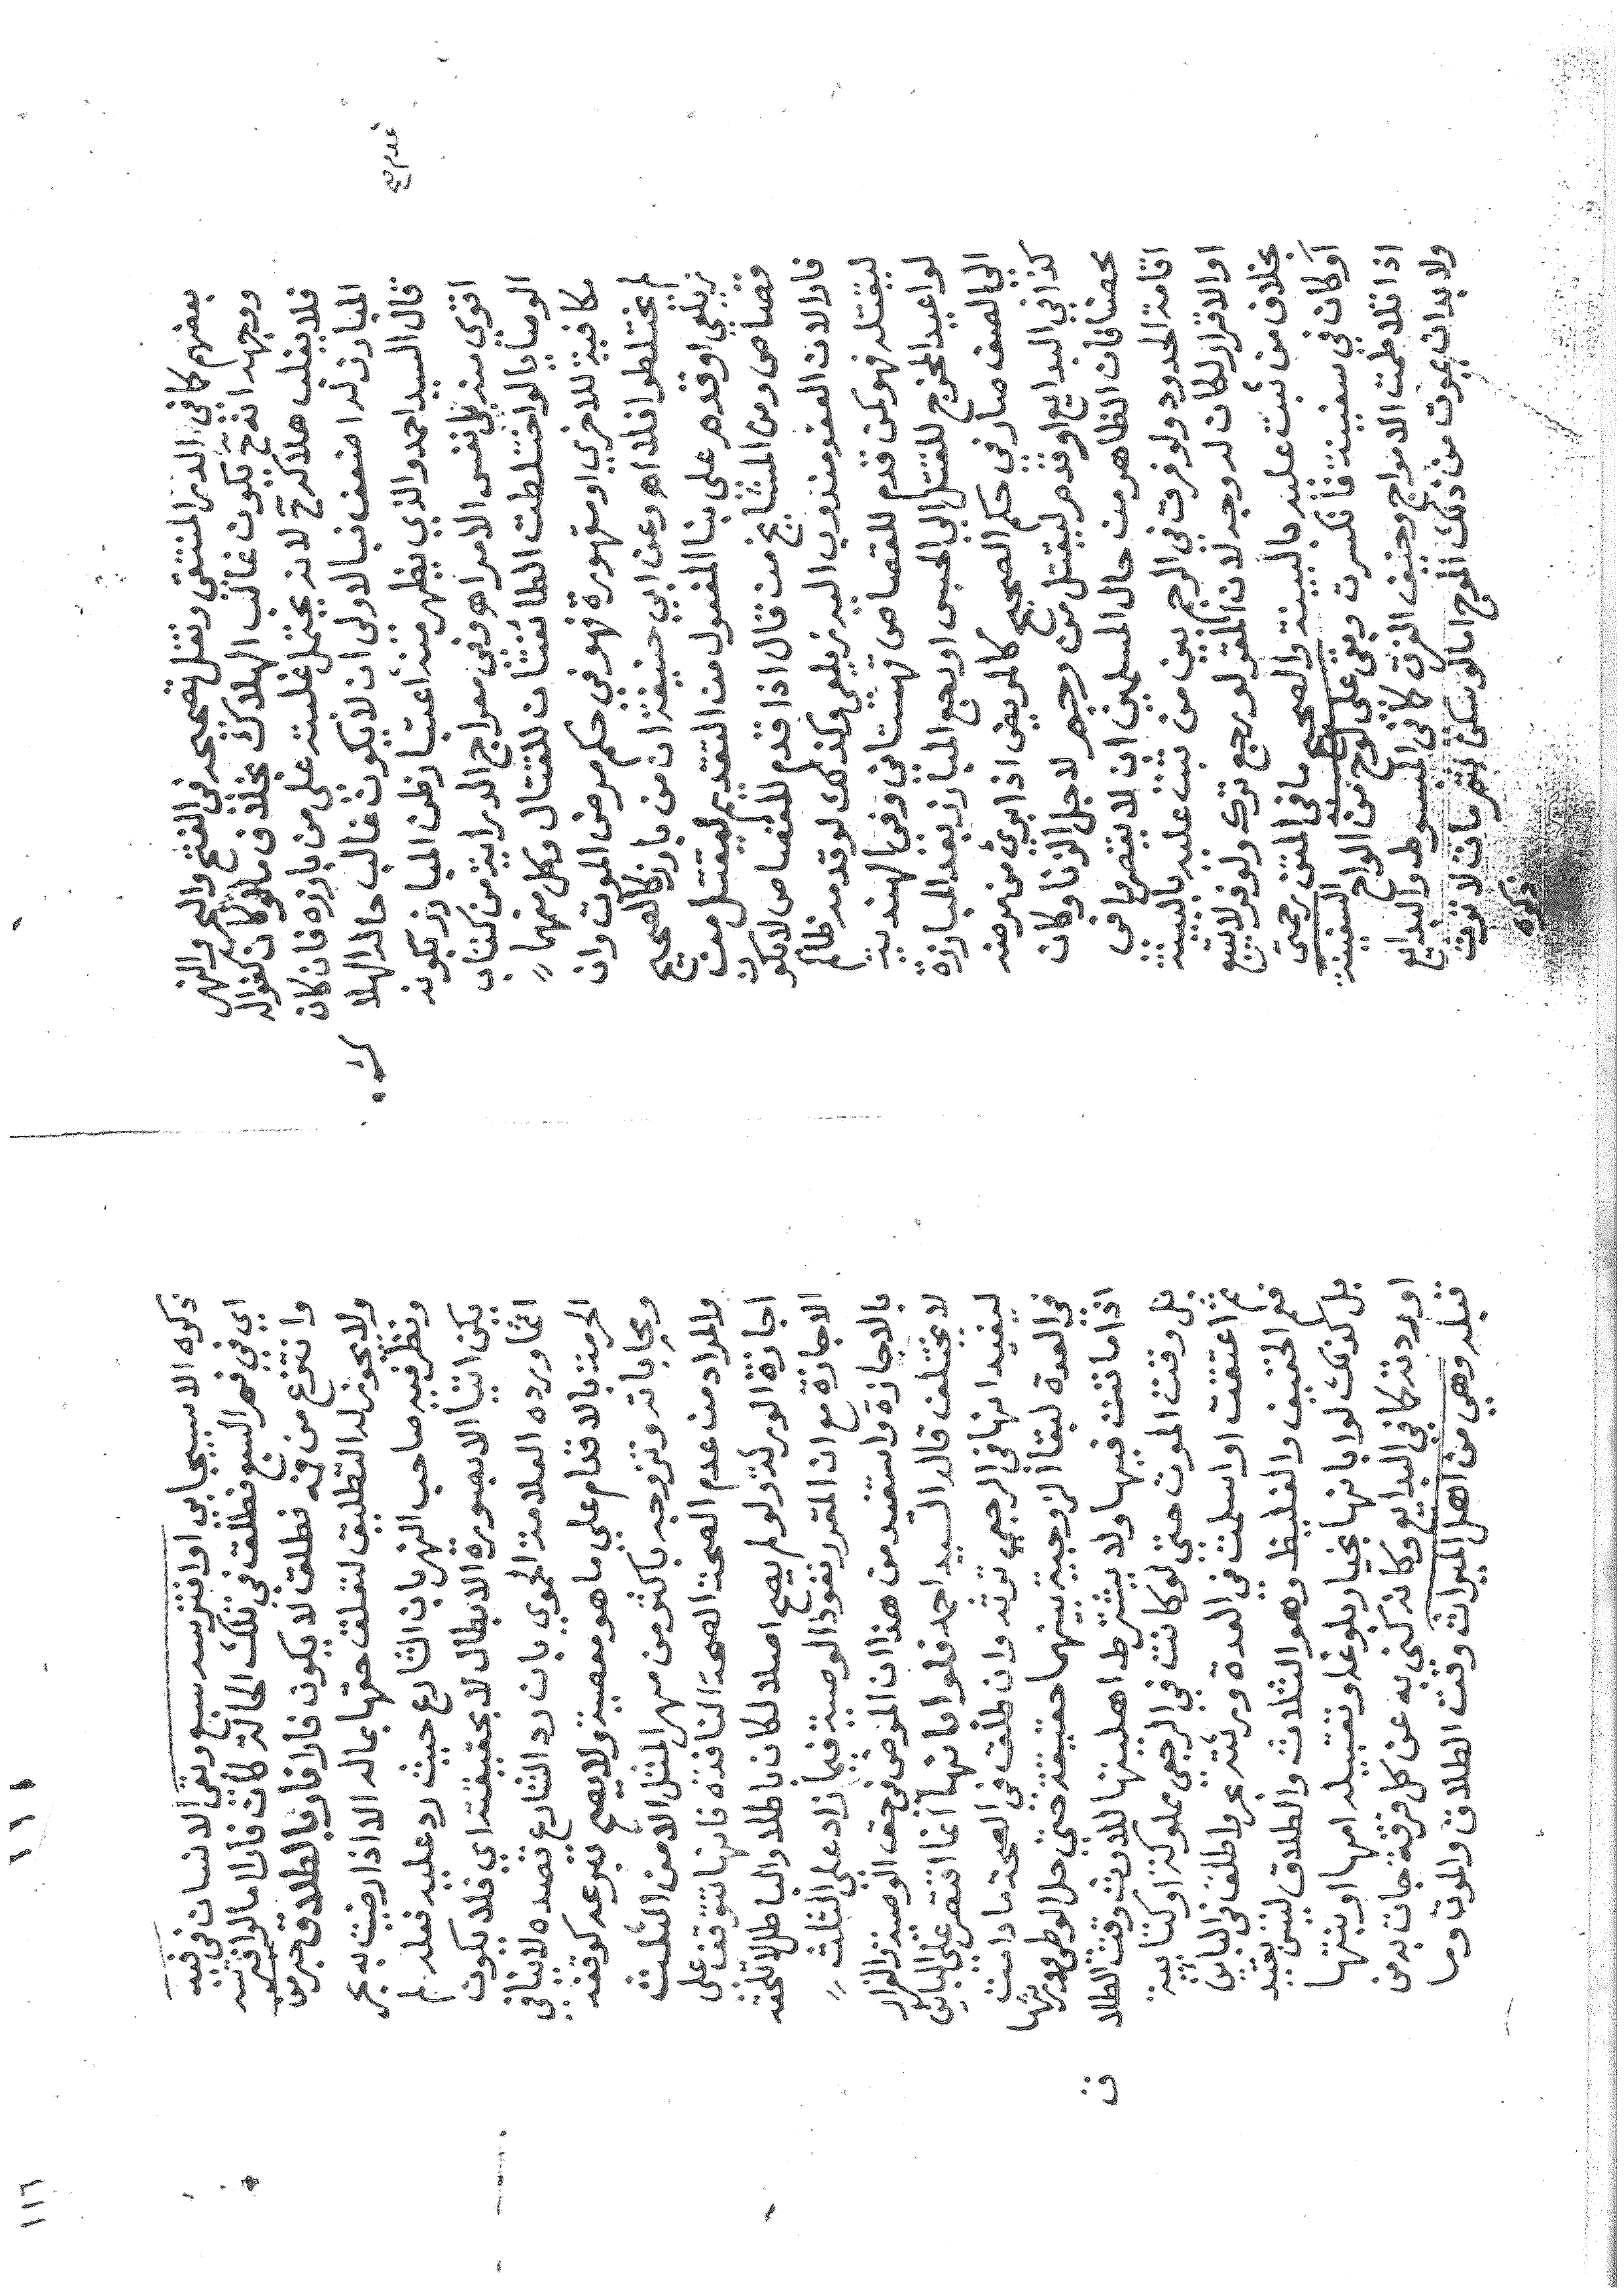 بعضهم كما فى الدر المنتقى ونقل تصحيحه فى الفتح والبحر والنهر
ووجهه انه ح يكون غالب الهلاك بخلاف ما لو كان كفوا له
فلا يغلب هلاكه ح لانه يحتمل غلبته على من بارزه فان كان
المبارز له اضعف فبالاولى ان لا يكون غالب حاله الهلا
ك
قال السيد احمد والذي يظهر منه اعتبار ظن المبارز بكونه
اقوى منه لا نفس الامر اهو وفى معراج الدراية من كتاب
الوصايا لو اختلطت الطائفتان للقتال وكل منهما
مكافية للاخرى او مقهورة فهو فى حكم مرض الموت وان
لم يختلطوا فلا اهو وعن ابي حنيفة ان من بارز كالصحيح
زيلعي او قدم على بنا المفعول من التقديم ليقتل من
قصاص ومن المشايخ من قال اذا قدم للقصاص لا يكون
فارا لان العفو مندوب اليه زيلعى وكذلك لو قدمه ظالم
ليقتله فهو كمن قدم للقصاص قهستاني وفى الهندية
لو اعيد المخرج للقتل الى الحبس او رجع المبارز بعد المبارزة
الى الصف صار فى حكم الصحيح كالمريض اذا برئ من مرضه
كذا فى البدايع او قدم ليقتل من رجم لاجل الزنا وكان
محصنا فان الظاهر من حال المسلمين ان لا يقصروا فى
اقامة الحدود ولو فرق فى الرجم بين من ثبت عليه بالبينة
او الاقرار لكان له وجه لان المقر لو رجع ترك ولو فر لا يتبع
بخلاف من ثبت عليه بالبينة والصحيح ما فى المتن رحمتى
او كان فى سفينة فانكسرت وبقى على لوح من الواح السفينة
اذا تلاطمت الامواج وخيف الغرق كما فى المبسوط والبدايع
ولا بد ان يموت من ذلك الموج اما لو سكن ثم مات لا ترث
ذكره
ذكره الاسبيجابي او افترسه سبع وبقى الانسان فى فيه
اي فى فم السبع فطلق فى تلك الحالة كان فارا اما لو افترسه
وانتزع من فمه فطلق لا يكون فارا فار بالطلاق خبر من
ولا يجوز له التطليق لتعلق حقها بماله الا اذا رضيت به بحر
ونظر فيه صاحب النهر بان الشارع حيث رد عليه فعله لم
يكن اتيا الا بصورة الابطال لا بحقيقته اي فلا يكون
اثما ورده العلامة الحموي بان رد الشارع قصده لا ينافى
الحرمة بالاقدام على ما هو معصية ولا يصح تبرعه كوقفه
ومحاباته وتزوجه باكثر من مهر المثل الا من الثلث
والمراد من عدم الصحة الصحة النافذة فانها تتوقف على
اجازة الورثة ولو لم يصح اصلا لكان باطلا والباطل لا تلحقه
الاجازة مع ان المقرر نفوذ الوصية فيما زاد على الثلث
بالاجازة واستفيد من هذا ان المرض فى حق الوصية والفرار
لا يختلف قاله السيد احمد فلو ابانها انما اقتصر على الباين
ليفيد انها فى الرجعى ترثه وان طلقت فى الصحة ما دامت
فى العدة لبقا الزوجية بينهما حقيقة حتى حل الوطى وورثها
اذا ماتت فيها ولا يشترط اهليتها للارث وقت الطلا
ق
بل وقت الموت حتى لو كانت فى الرجعى مملوكة او كتابية
ثم اعتقت او اسلمت فى العدة ورثته بحر واطلق فى الباين
فعم الخفيف والغليظ وهو الثلاث والطلاق ليس بقيد
بل كذلك لو ابانها بخيار بلوغ او تقبيله امها او بنتها
او ردته كما فى البدايع وكانه كنى به عن كل فرقة جات به من
قبله وهى من اهل الميراث وقت الطلاق والموت وما
١١٦